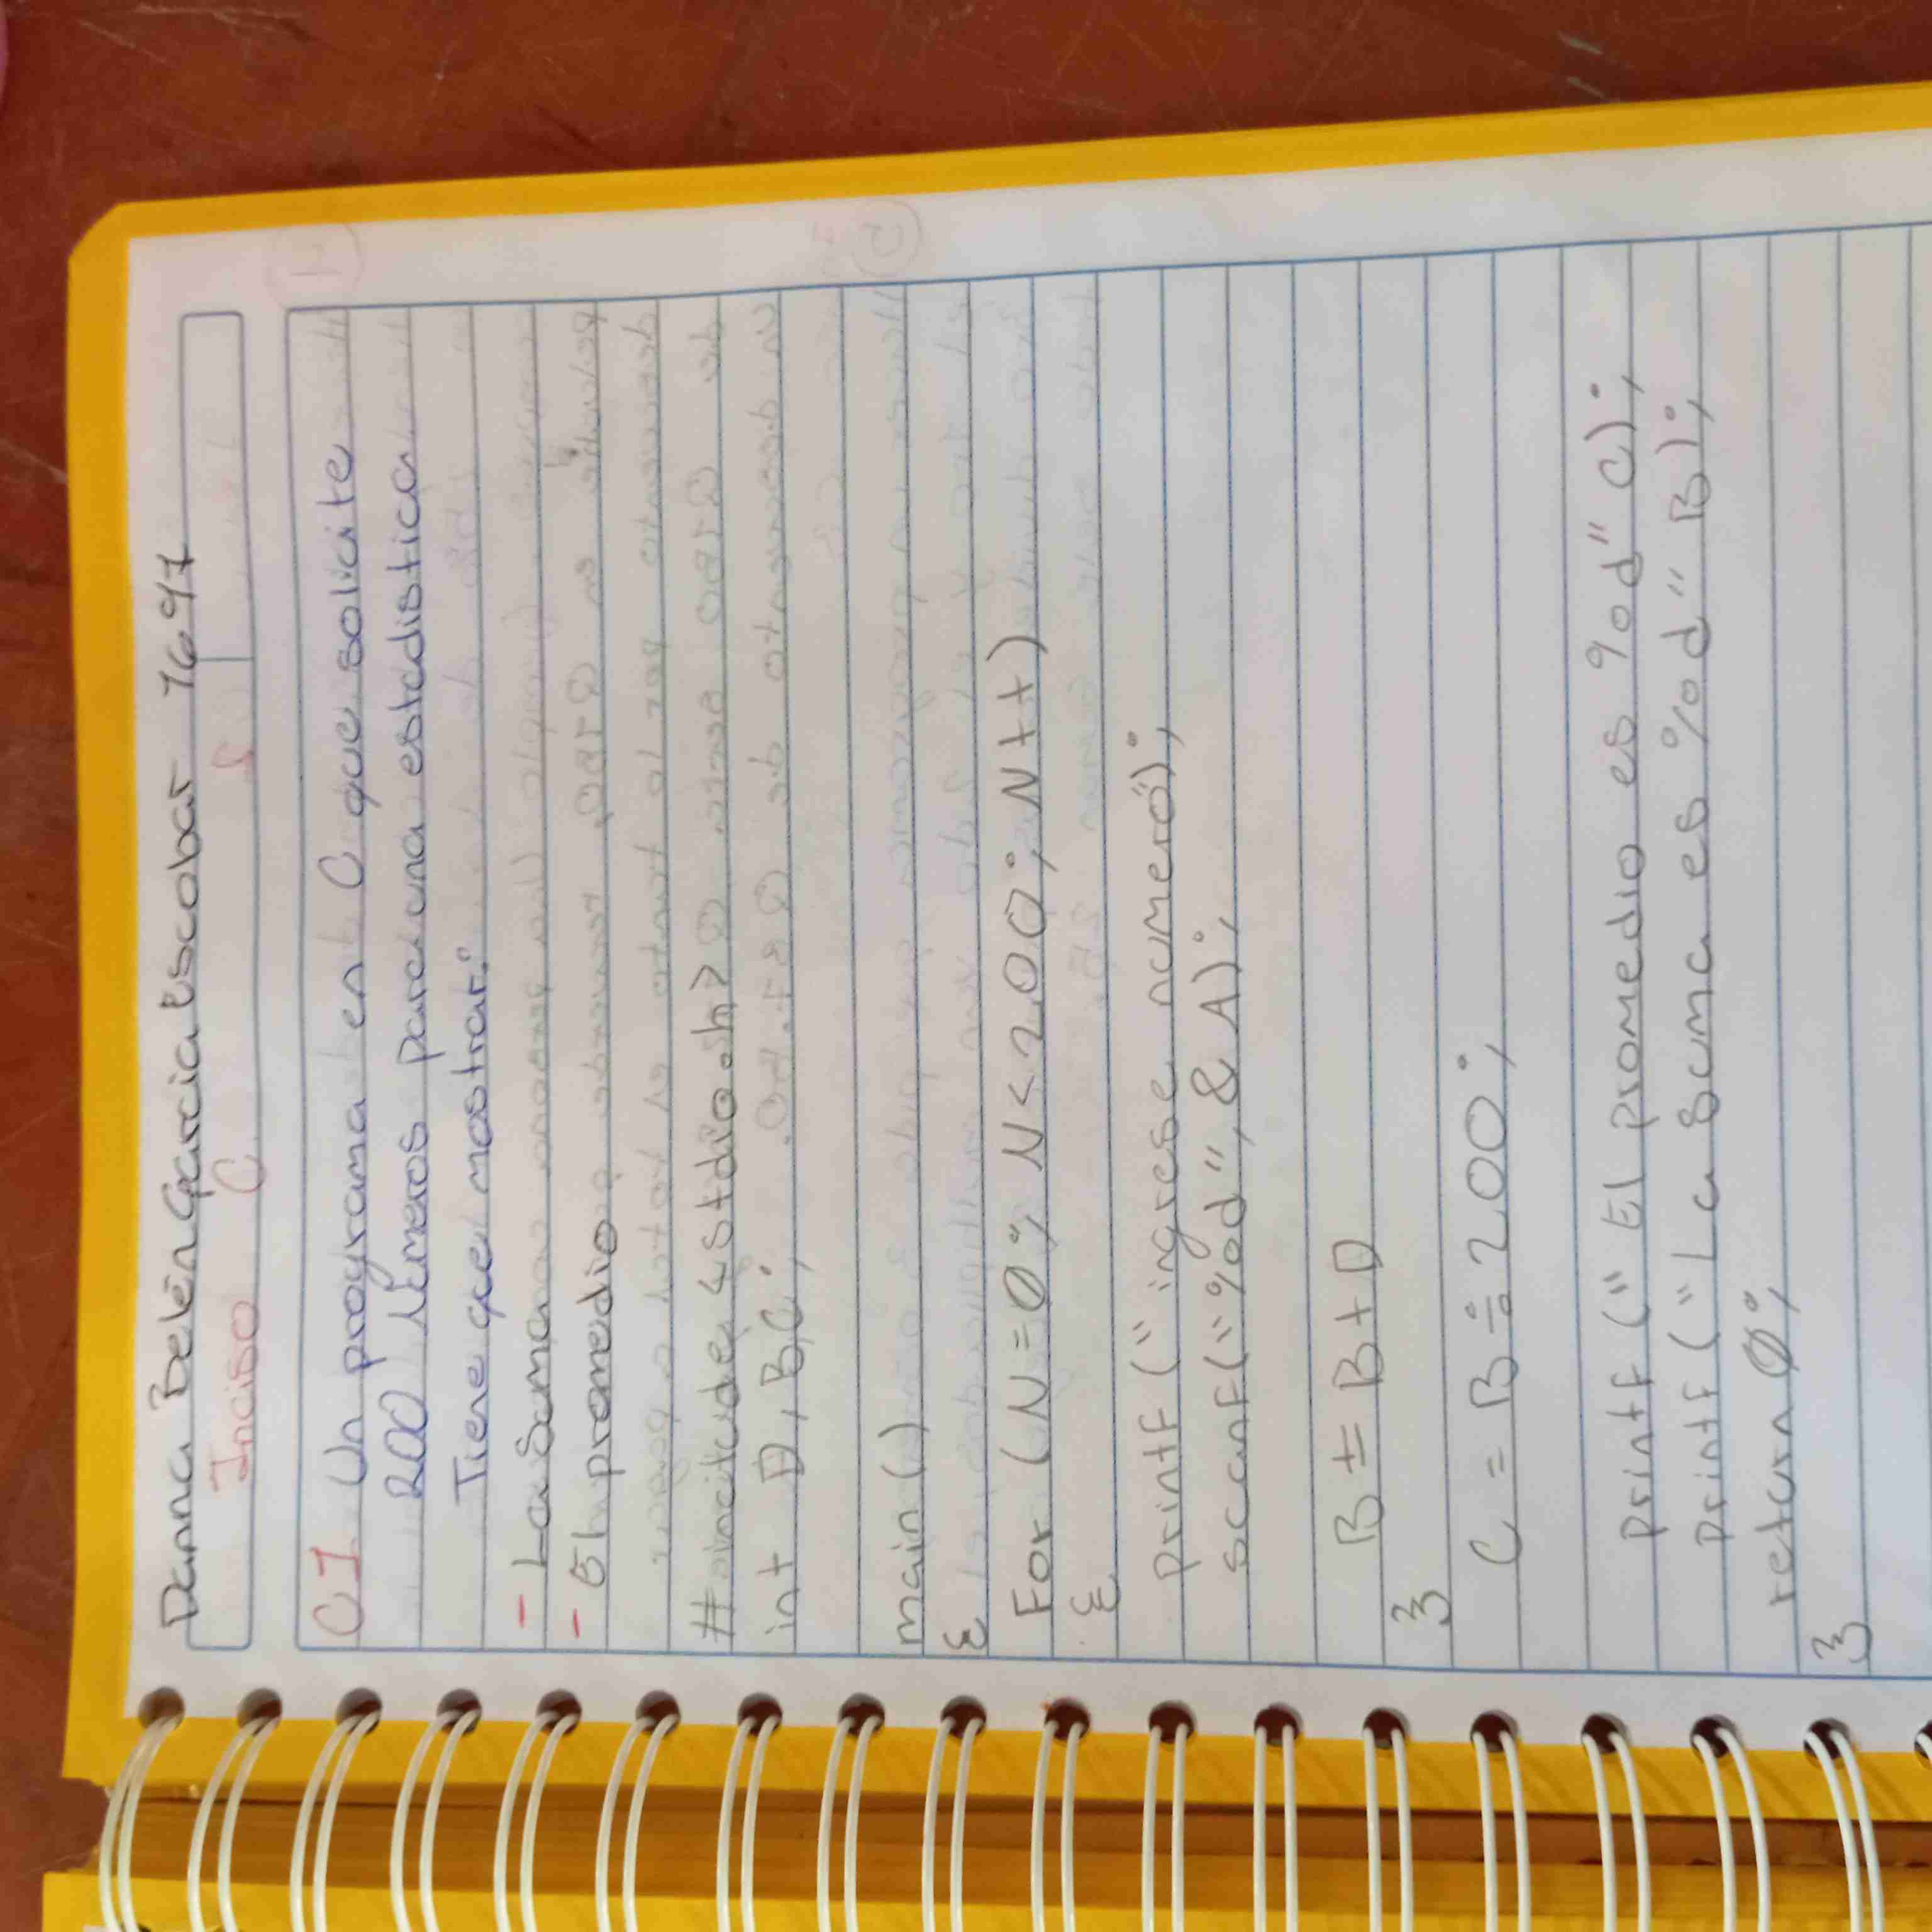 Danna Belén García Escobar 7697
Inciso C
C1 Un programa en C que solicite
200 Números para una estadística.
Tiene que mostrar:
- La Suma
- El promedio
#include <stdio.h>
int D, B, C;
main()
{
For (N=0; N<200; N++)
{
printf ("ingrese numero");
scanf("%d", & A);
B += B+D
}
C = B÷200;
printf ("El promedio es %d" C);
printf ("La suma es %d" B);
return 0;
}